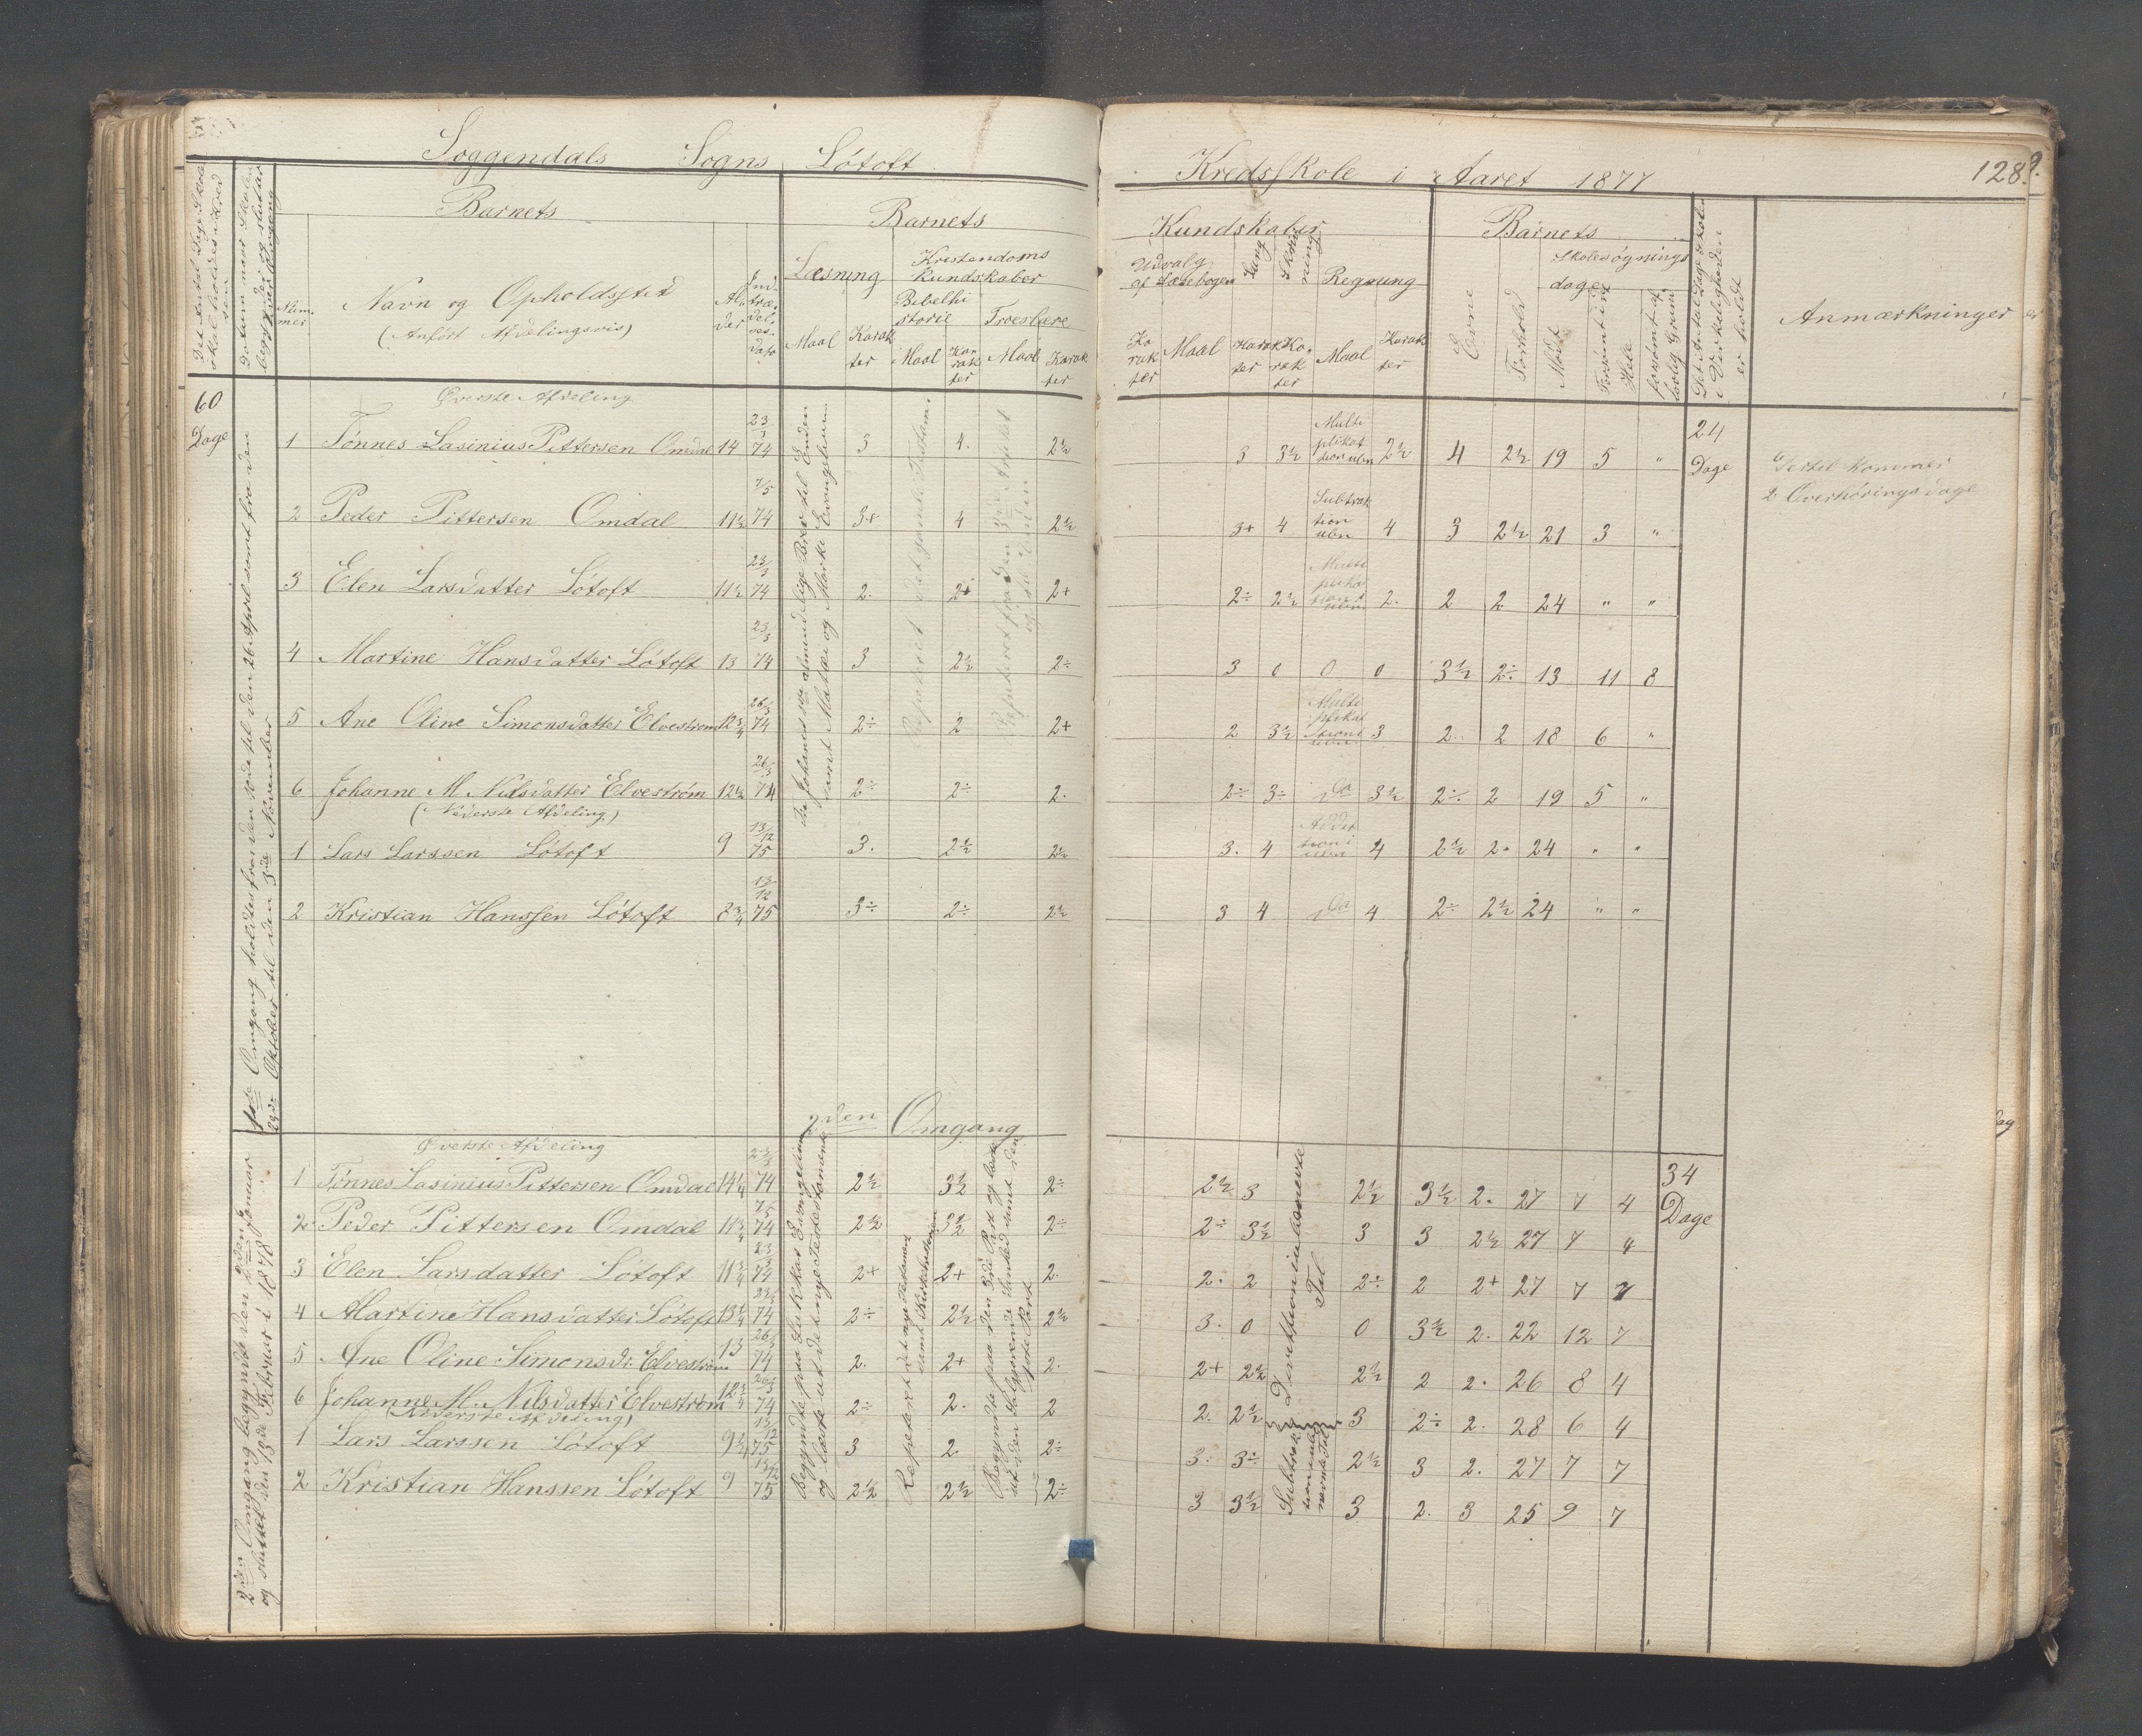 Soggendals Sogns Løtoft Kredsskole i Aaret 1877 128.
Barnets Barnets Kundskaber Barnets
Det Antal Dage Skole skal holdes i Kredsen
Datum naar Skolen begynder og slutter hver Omgang
Nummer
Navn og Opholdssted
(Anført Afdelingsvis)
Alder
Indtrædelsesdato
Læsning
Maal Karakter
Kristendoms Kundskaber
Bibelhistorie
Maal Karakter
Troeslære
Maal Karakter
Udvalg af Læsebogen
Karakter Maal
Sang
Karakter
Skrivning
Karakter
Regning
Maal Karakter
Evne
Forhold
Skolesøgnings dage
Mødt
Forsømt i det Hele
forsømt af lovlig Grund
Det Antal Dage Skolen i Virkeligheden er holdt
Anmærkninger
60 Dage
1ste Omgang holdtes fra den 10de til den 26 April samt fra den 23de Oktober til den 3die November
Øverste Afdeling
1 Tønnes Lasinius Pittersen Omdal 14 23/3 74 3 4. 2½ 3 3½ Multiplikation ubn 2½ 4 2½ 19 5 "
2 Peder Pittersen Omdal 11½ 7/5 74 3+ 4 2½ 3+ 4 Subtraktion ubn 4 3 2½ 21 3 "
3 Elen Larsdatter Løtoft 11½ 23/3 74 2. 2+ 2+ 2÷ 2½ Multiplikation i ubn 2. 2 2 24 " "
4 Martine Hansdatter Løtoft 13 23/3 74 3 2½ 2÷ 3 0 0 0 3½ 2÷ 13 11 8
5 Ane Oline Simonsdatter Elvestrøm 12¾ 26/3 74 2÷ 2 2+ 2 3½ Multiplikation i ubn 3 2. 2 18 6 "
6 Johanne M Nilsdatter Elvestrøm 12½ 26/3 74 2÷ 2÷ 2. 2÷ 3÷ Do 3½ 2÷ 2 19 5 "
(Nederste Afdeling)
1 Lars Larssen Løtoft 9 13/12 75 3. 2½ 2½ 3. 4 Addition i ubn 4 2½ 2. 24 " "
2 Kristian Hanssen Løtoft 8¾ 13/12 75 3÷ 2÷ 2½ 3 4 Do 4 2÷ 2½ 24 " "
24 Dage
Hertil kommer
2 Overhørings dage
2den Omgang
2den Omgang begyndte den 2den Januar og sluttet den 13de Februar i 1878
Øverste Afdeling
1 Tønnes Lasinius Pittersen Omdal 14¼ 23/3 74 2½ 3½ 2÷ 2½ 3 2½ 3½ 2. 27 7 4
2 Peder Pittersen Omdal 11¾ 7/5 74 2½ 3½ 2÷ 2÷ 3½ 3 3 2½ 27 7 4
3 Elen Larsdatter Løtoft 11¾ 23/3 74 2+ 2+ 2. 2. 2 2÷ 2 2+ 27 7 7
4 Martine Hansdatter Løtoft 13¼ 23/3 74 2÷ 2½ 2½ 3. 0 0 3½ 2. 22 12 7
5 Ane Oline Simonsdr Elvestrøm 13 26/3 74 2. 2+ 2. 2+ 2½ 2½ 2 2. 26 8 4
6 Johanne M. Nilsdatter Elvestrøm 12¾ 26/3 74 2÷ 2. 2 2. 2½ 3 2÷ 2. 28 6 4
(Nederste Afdeling)
1 Lars Larssen Løtoft 9¼ 13/12 75 3 2 2÷ 3. 3÷ 2½ 3 2. 27 7 7
2 Kristian Hanssen Løtoft 9 13/12 75 2½ 2½ 2÷ 3 3½ 3 2. 3 25 9 7
34 Dage